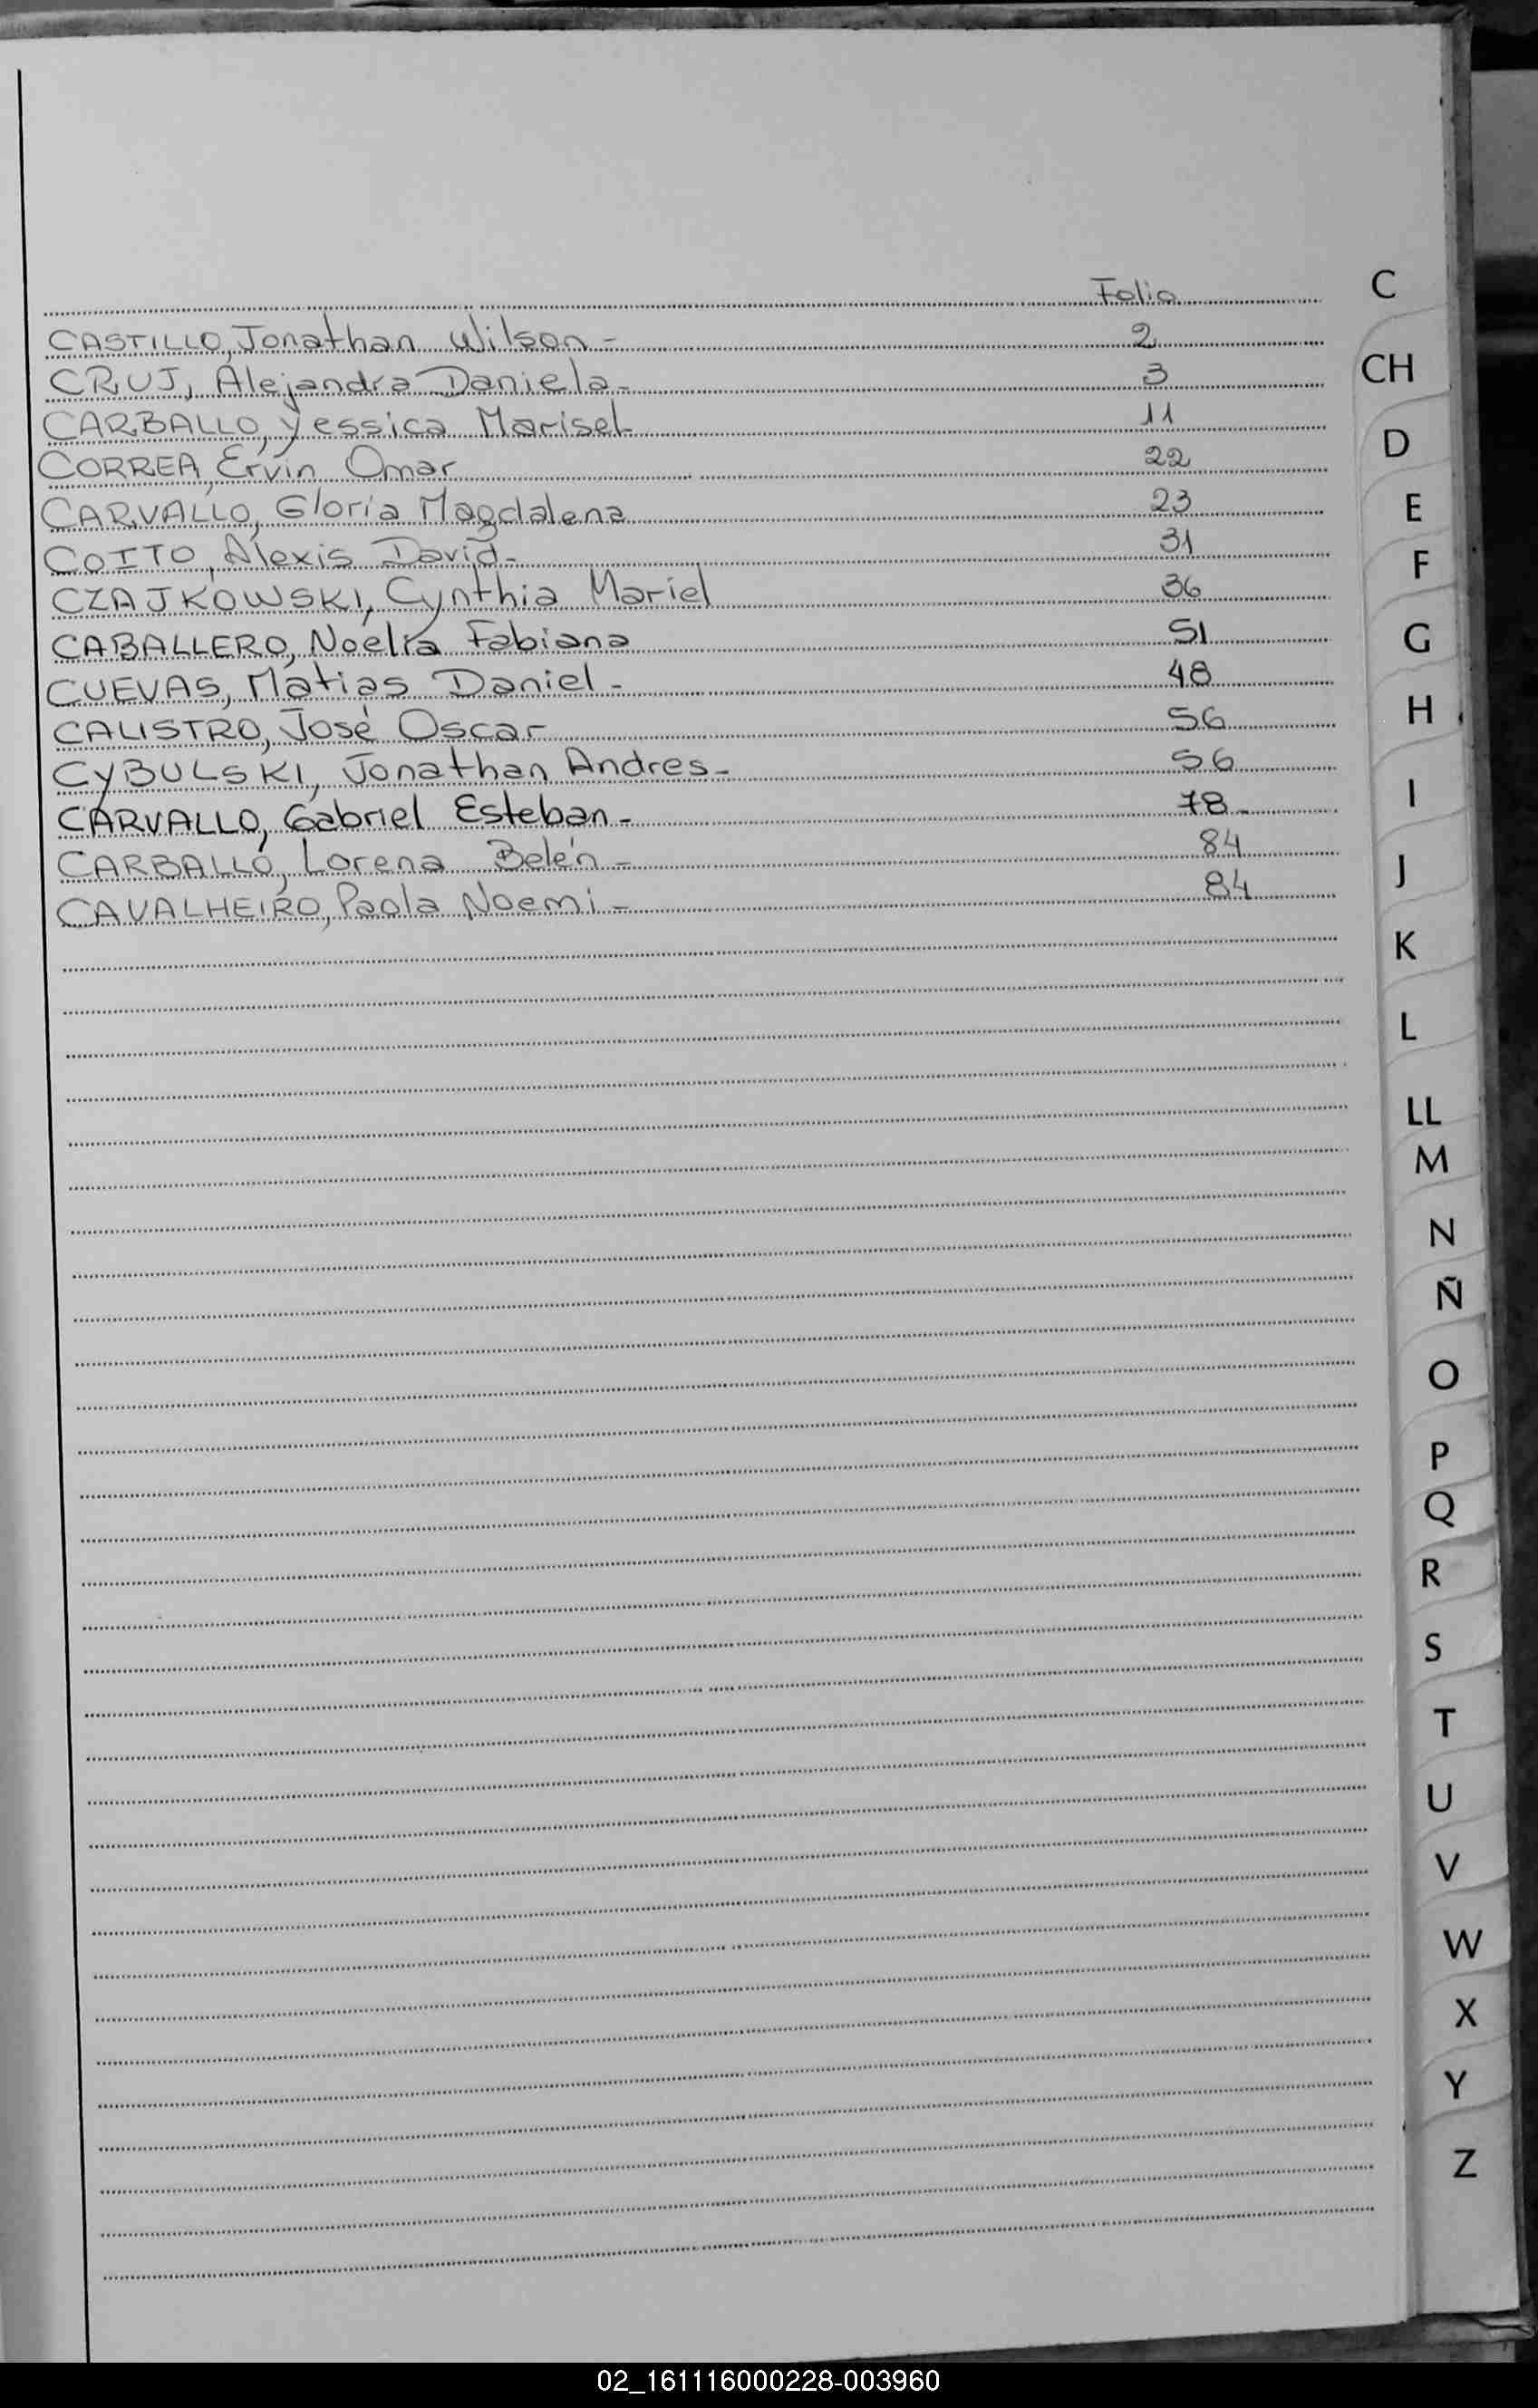 Folio
CASTILLO, Jonathan Wilson - 2
CRUJ, Alejandra Daniela - 3
CARBALLO, Yessica Marisel 11
CORREA, Ervin Omar 22
CARVALLO, Gloria Magdalena 23
COITO, Alexis David - 31
CZAJKOWSKI, Cynthia Mariel 36
CABALLERO, Noelia Fabiana 51
CUEVAS, Matias Daniel - 48
CALISTRO, José Oscar 56
CYBULSKI, Jonathan Andres - 56
CARVALLO, Gabriel Esteban - 78 -
CARBALLO, Lorena Belén - 84
CAVALHEIRO, Paola Noemi - 84
C
CH
D
E
F
G
H
I
J
K
L
LL
M
N
Ñ
O
P
Q
R
S
T
U
V
W
X
Y
Z
02_161116000228-003960